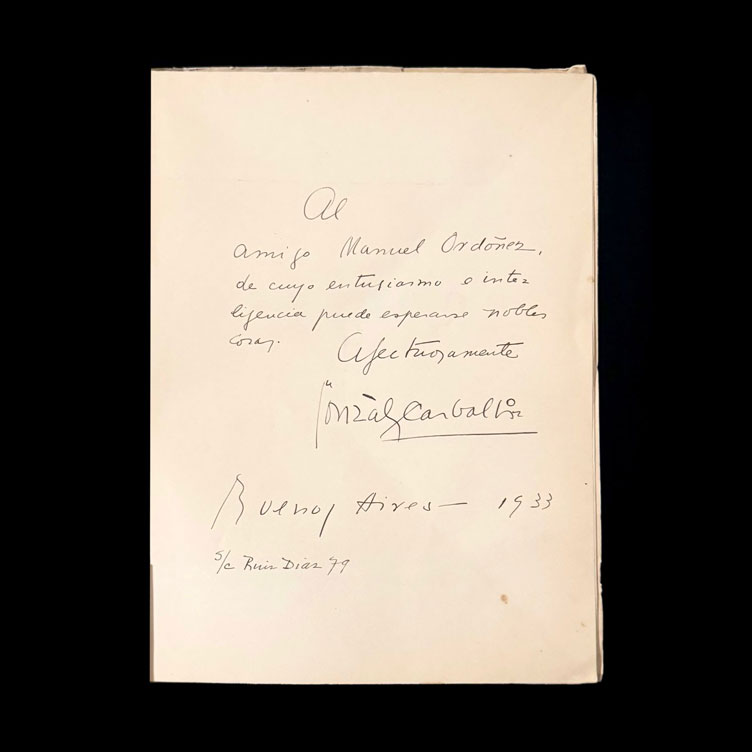 Al
amigo Manuel Ordóñez,
de cuyo entusiasmo e inte-
ligencia puede esperarse nobles
cosas.
Afectuosamente
González Carbalho
Buenos Aires — 1933
s/c Ruiz Diaz 79